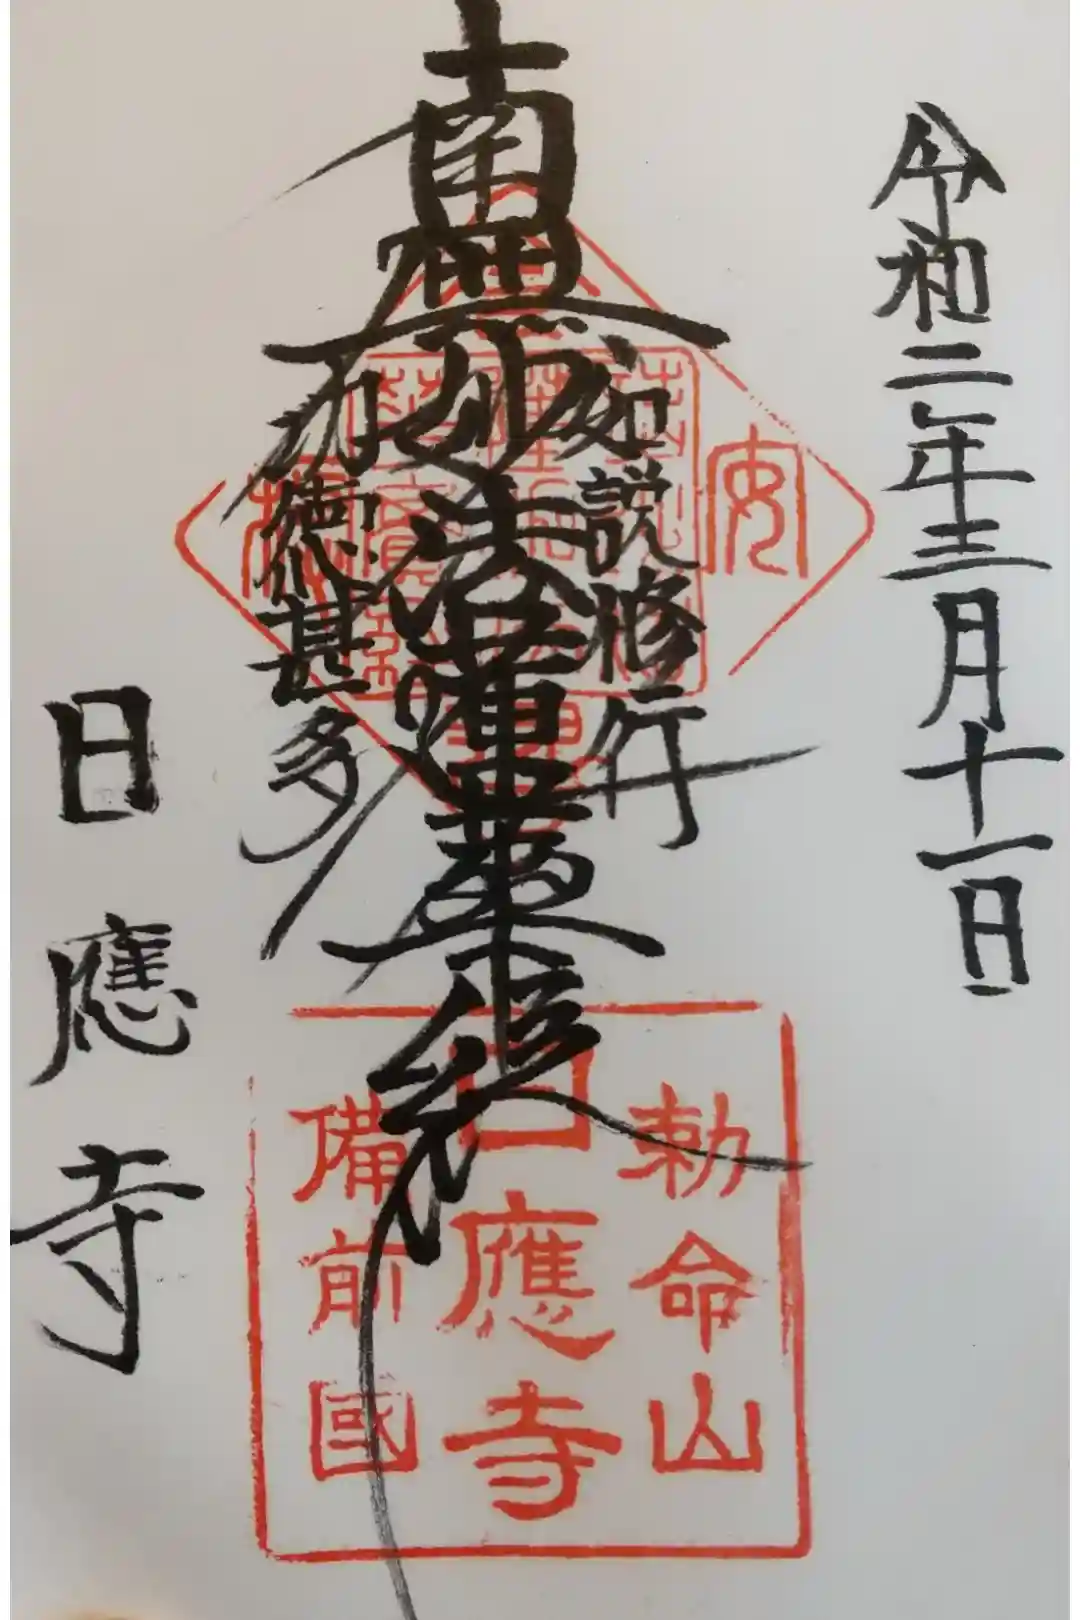 令和二年三月十一日
如説修行
南無妙法蓮華経
功徳甚多
日應寺
安
勅命山
日應寺
備前國